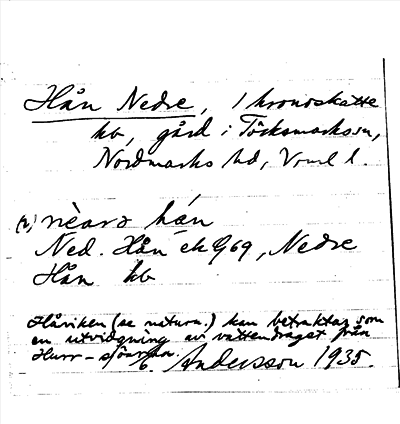 Hån Nedre, 1 kronoskatte
hb, gård i Töcksmarks sn,
Nordmarks hd, Vrml l.
(2) nèarə hán
Ned. Hån ek G69, Nedre
Hån hb
Håviken (se naturn.) kan betraktas som
en utvidgning av vattendraget från
Hurr-sjöarna.
G. Andersson 1935.